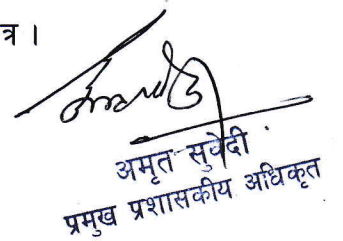 त्र ।
अमृत सुवेदी
प्रमुख प्रशासकीय अधिकृत